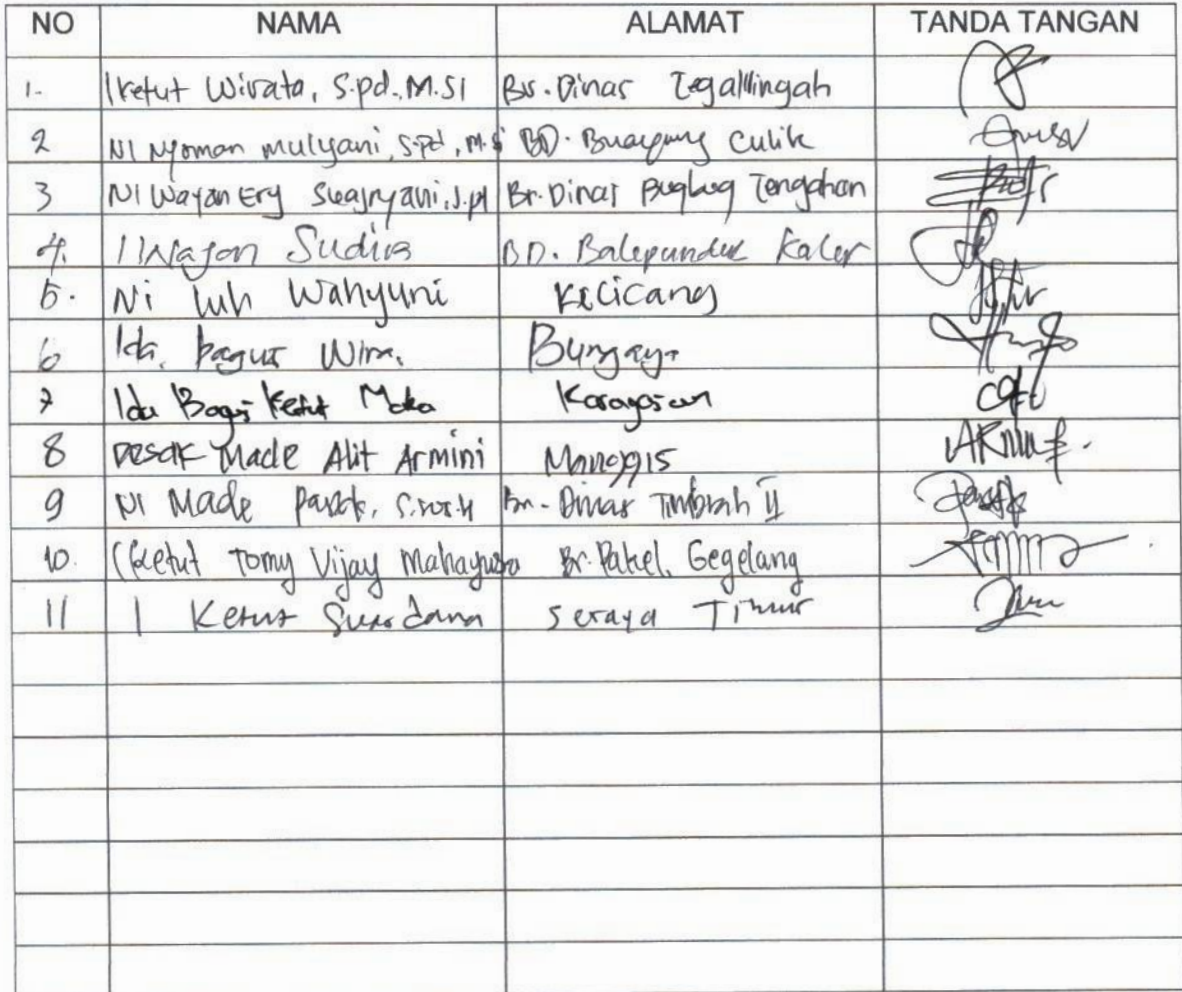 NO NAMA ALAMAT TANDA TANGAN
1. I Ketut Wirata, S.pd., M.SI Br. Dinas Tegallingah
2 NI Nyoman mulyani, S.Pd, M.Si BD. Culik
3 NI Wayan Ery Br. Dinas Bugbug Tengahan
4. I Wayan Sudira BD. Balepunduk Kaler
5. Ni luh Wahyuni Kecicang
6 Ida bagus Wira. Bungaya
7 Ida Bagus Ketut Moka
8 Desak Made Alit Armini Manggis
9 NI Made Br. Dinas Timbrah II
10. I Ketut Tomy Vijay Br. Pakel, Gegelang
11 I Ketut Suardana Seraya Timur